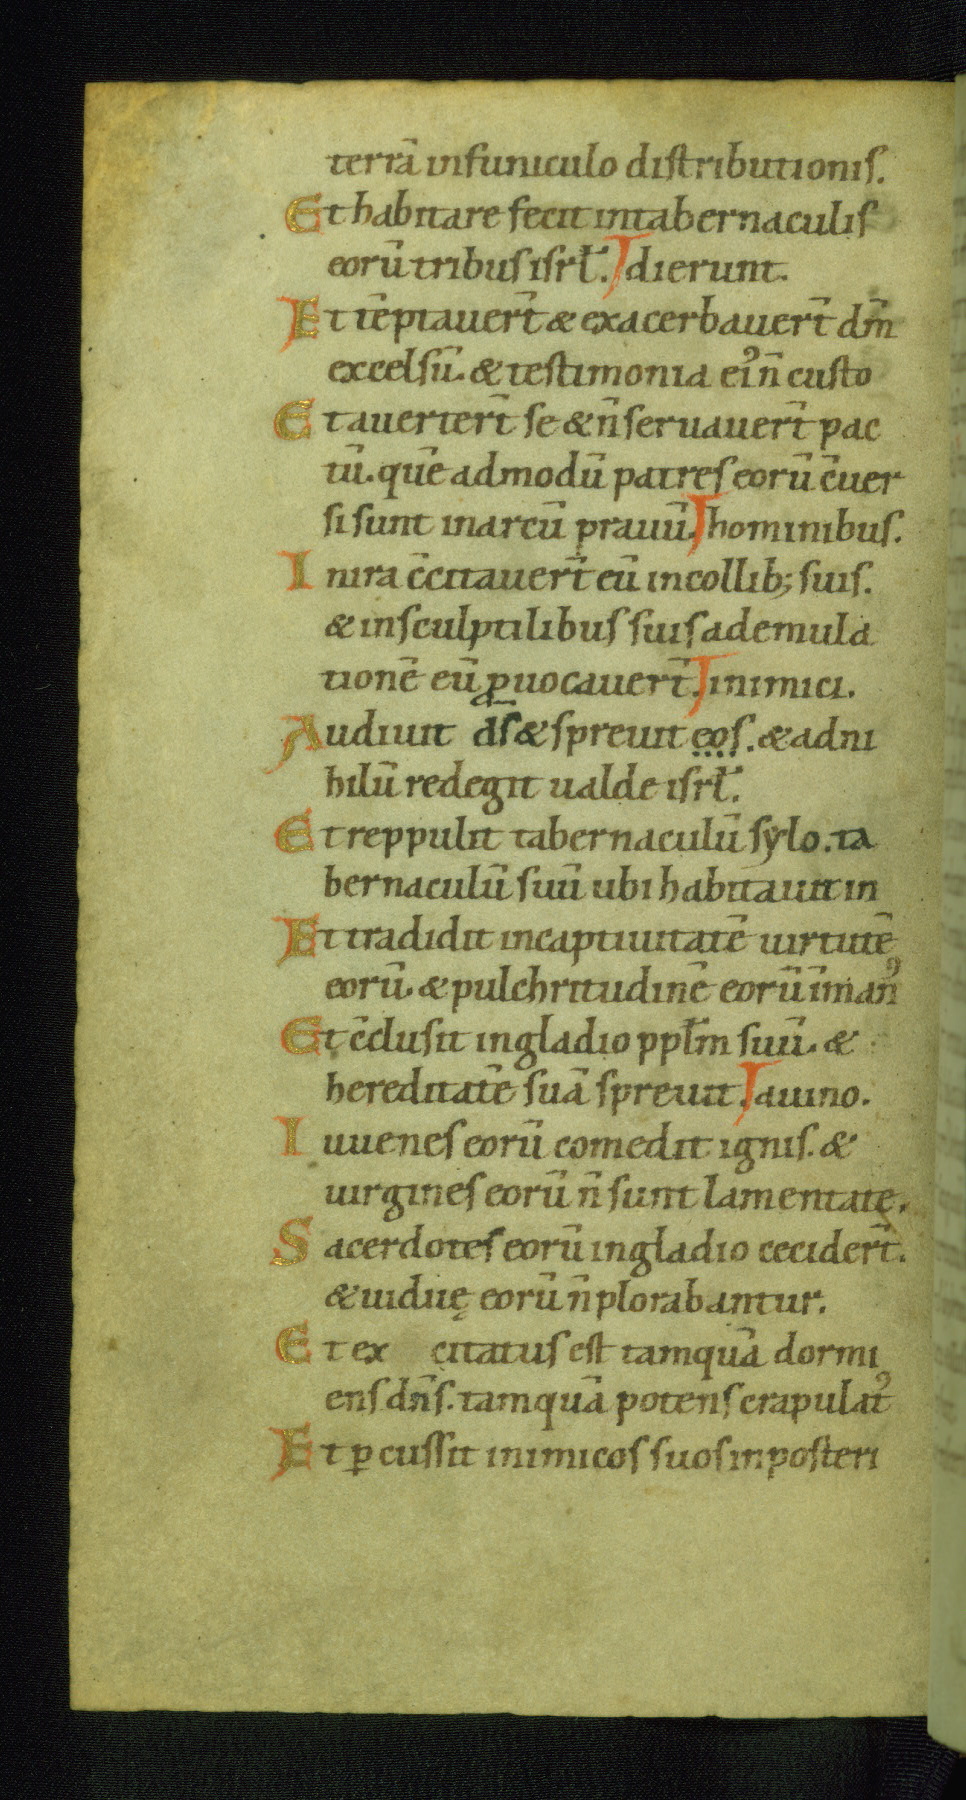 terrā in funiculo distributionis.
Et habitare fecit in tabernaculis
eorū tribus isrł. dierunt.
Et tēptauer̄t & exacerbauer̄t dm̄
excelsū. & testimonia ei' n̄ custo
Et auerter̄t se & n̄ seruauer̄t pac
tū. quē admodū patres eorū c̄uer
si sunt in arcū prauū. hominibus.
In ira c̄citauer̄t eū in collib; suis.
& in sculptilibus suis ad emula
tionē eū ꝓuocauer̄t. inimici.
Audiuit ds̄ & spreuit eos. & ad ni
hilū redegit ualde isrł.
Et reppulit tabernaculū sẏlo. ta
bernaculū suū ubi habitauit in
Et tradidit in captiuitatē uirtutē
eorū. & pulchritudinē eorū ī man'
Et c̄clusit in gladio ppłm suū. &
hereditatē suā spreuit. auino.
Iuuenes eorū comedit ignis. &
uirgines eorū n̄ sunt lamentatę.
Sacerdotes eorū in gladio cecider̄t.
& uiduę eorū n̄ plorabantur.
Et ex citatus est tamquā dormi
ens dn̄s. tamquā potens crapulat'
Et ꝑcussit inimicos suos in posteri